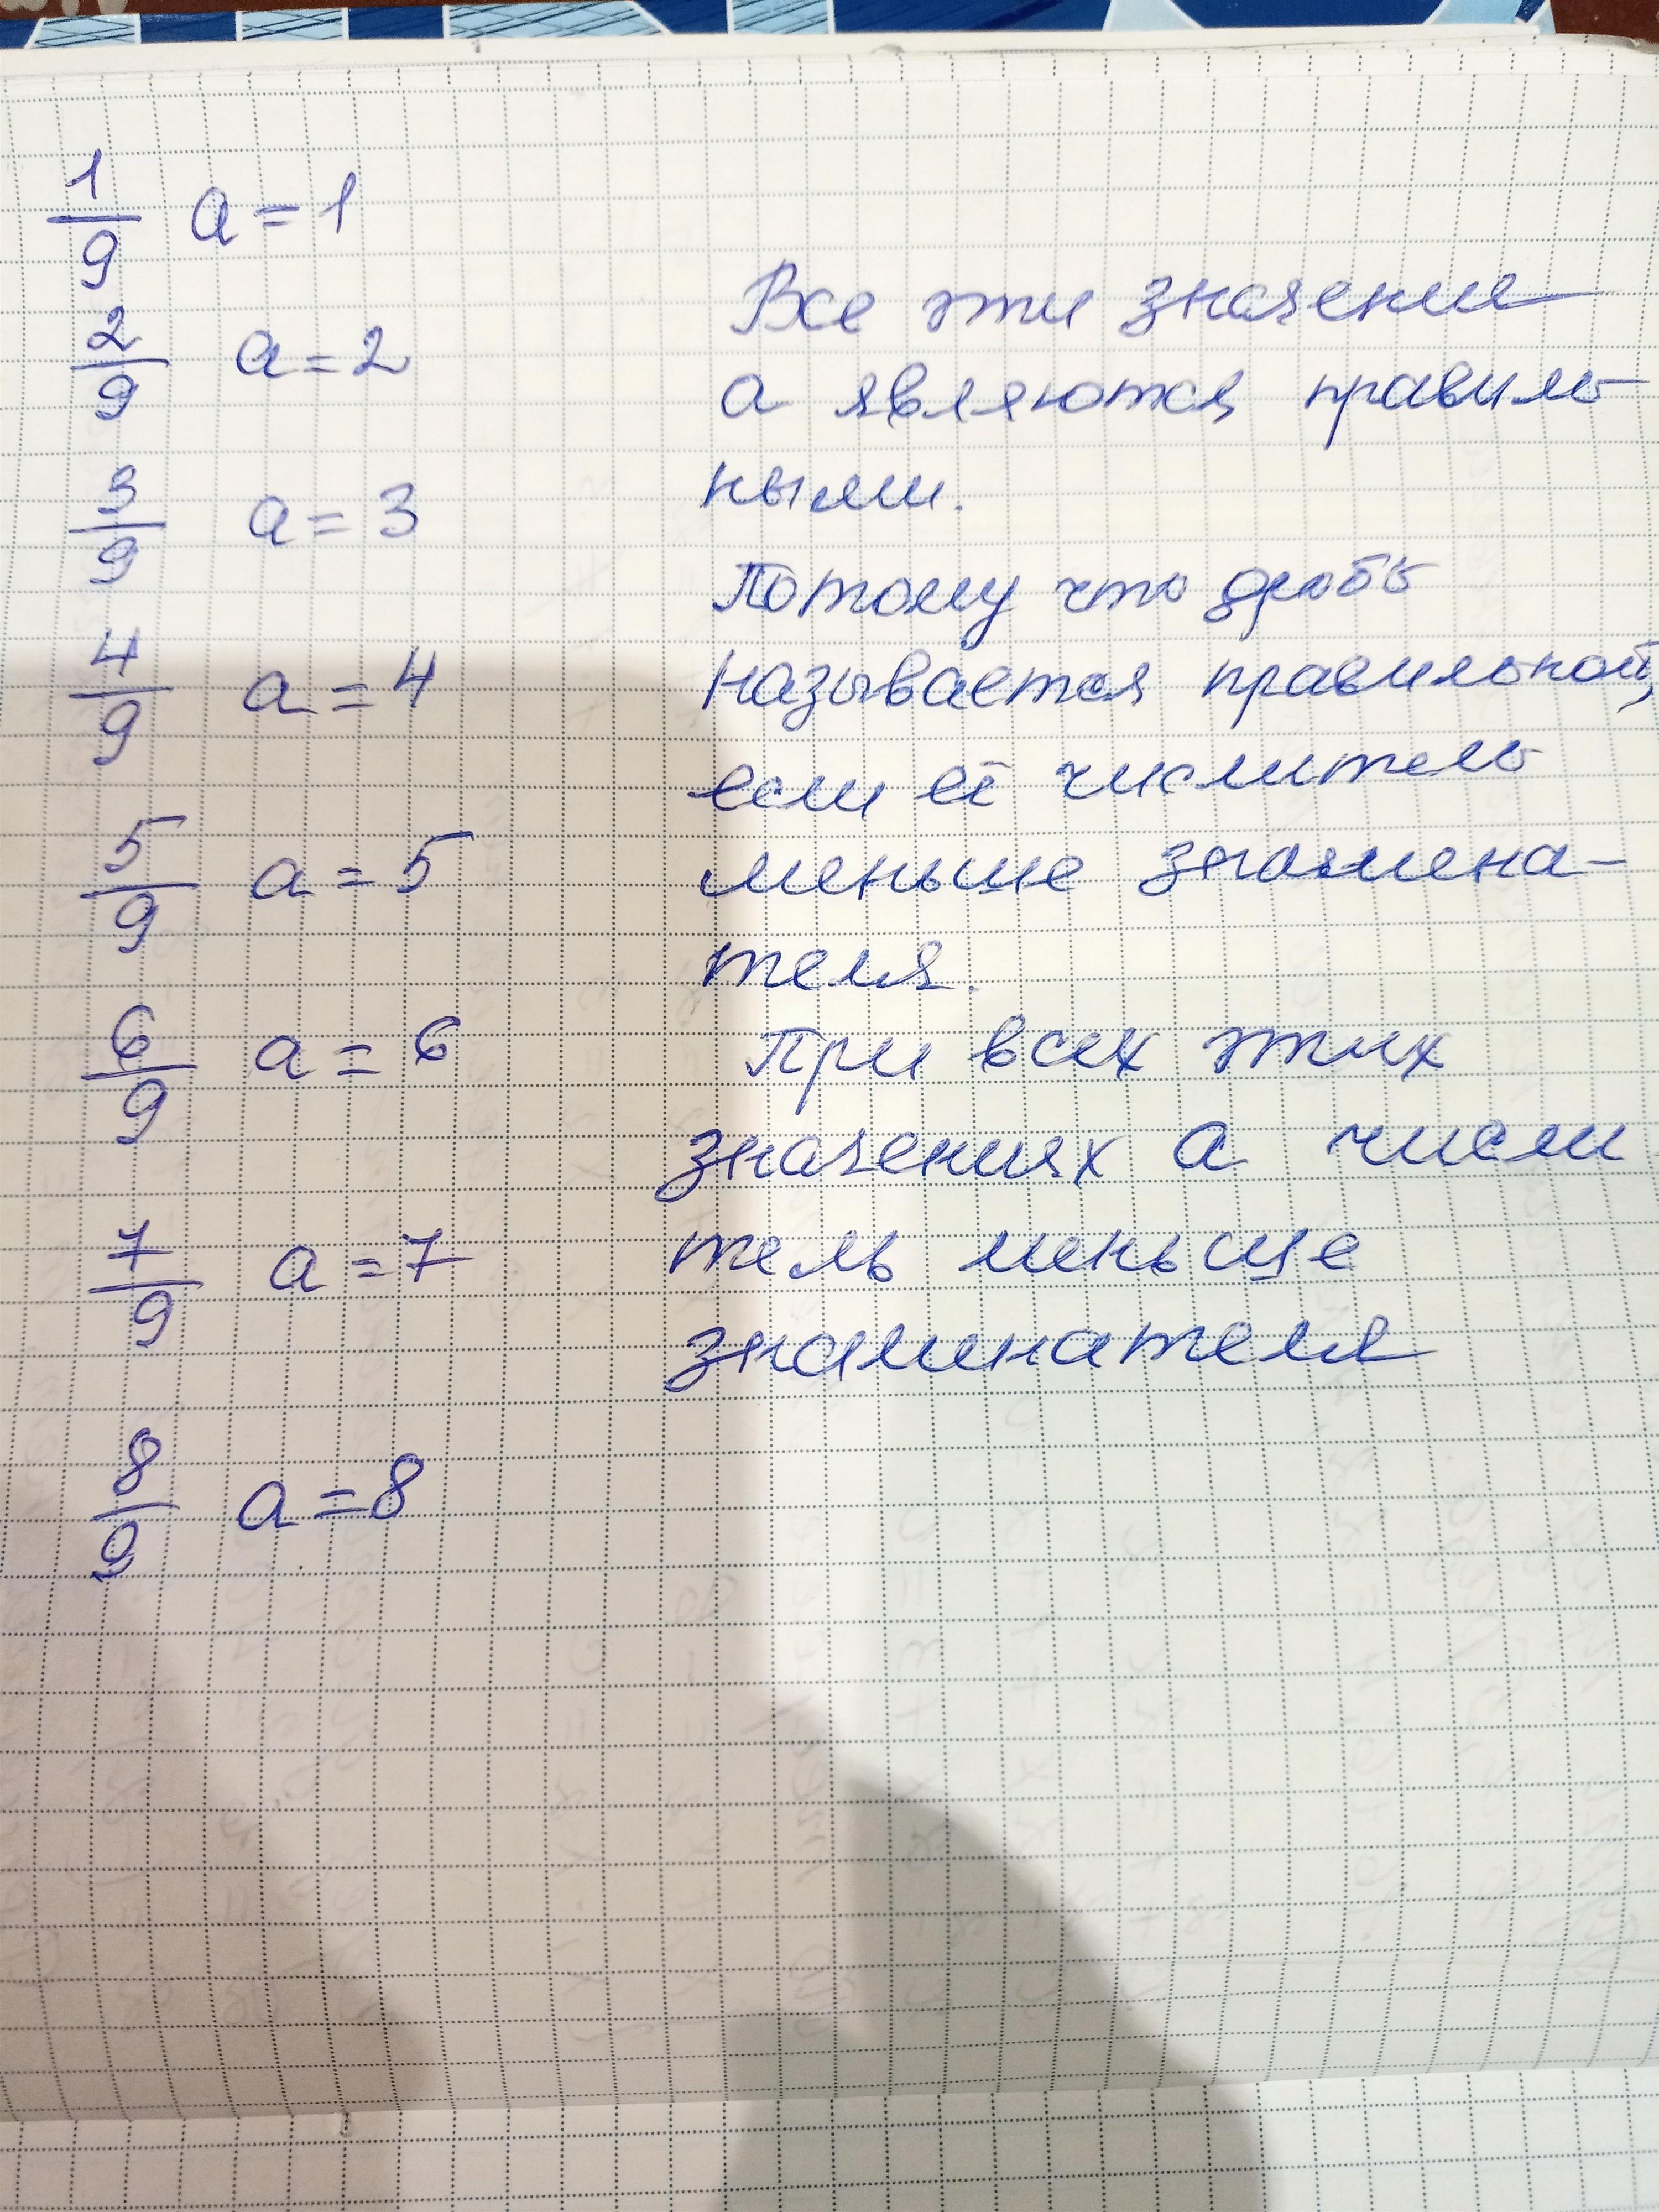 1/9 a = 1
2/9 a = 2
3/9 a = 3
4/9 a = 4
5/9 a = 5
6/9 a = 6
7/9 a = 7
8/9 a = 8
Все эти значения
а являются правиль-
ными.
Потому что дробь
называется правильной,
если её числитель
меньше знамена-
теля.
При всех этих
значениях а числи
тель меньше
знаменателя